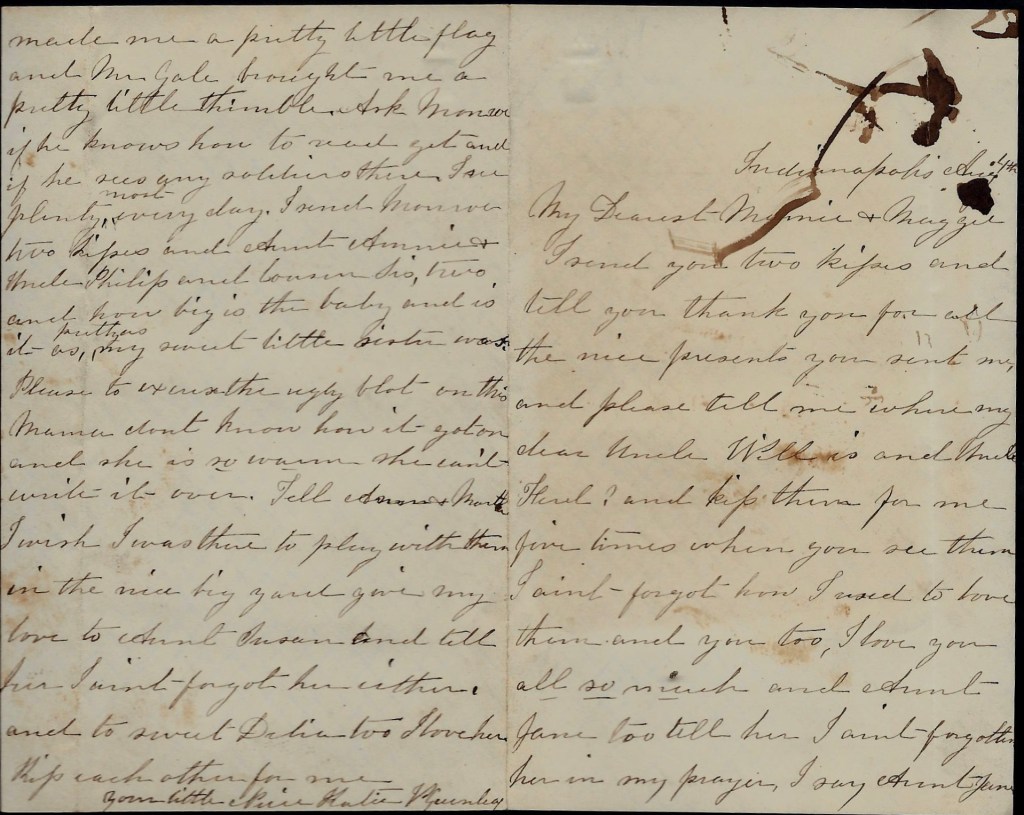 made me a pretty little flag
and Mr Gale brought me a
pretty little thimble. Ask Monroe
if he knows how to read yet and
if he sees any soldiers there. I see
plenty, most every day. I send Monroe
two kisses and Aunt Annie &
Uncle Philip and Cousin Sis, two
and how big is the baby and is
it as pretty as, my sweet little sister was.
Please to excuse the ugly blot on this
Mama dont know how it got on
and she is so warm she can't
write it over. Tell & Martha
I wish I was there to play with them
in the nice big yard give my
love to Aunt Susan and tell
her I aint forgot her either.
and to sweet Delia too I love her
Kiss each other for me
your little Niece Katie
Indianapolis Aug 4th
My Dearest Mamie & Maggie
I send you two kisses and
tell you thank you for all
the nice presents you sent me,
and please tell me where my
dear Uncle Will is and Uncle
Ferd? and kiss them for me
five times when you see them
I aint forgot how I used to love
them and you too, I love you
all so much and Aunt
Jane too tell her I aint forgotten
her in my prayer, I say Aunt Jane